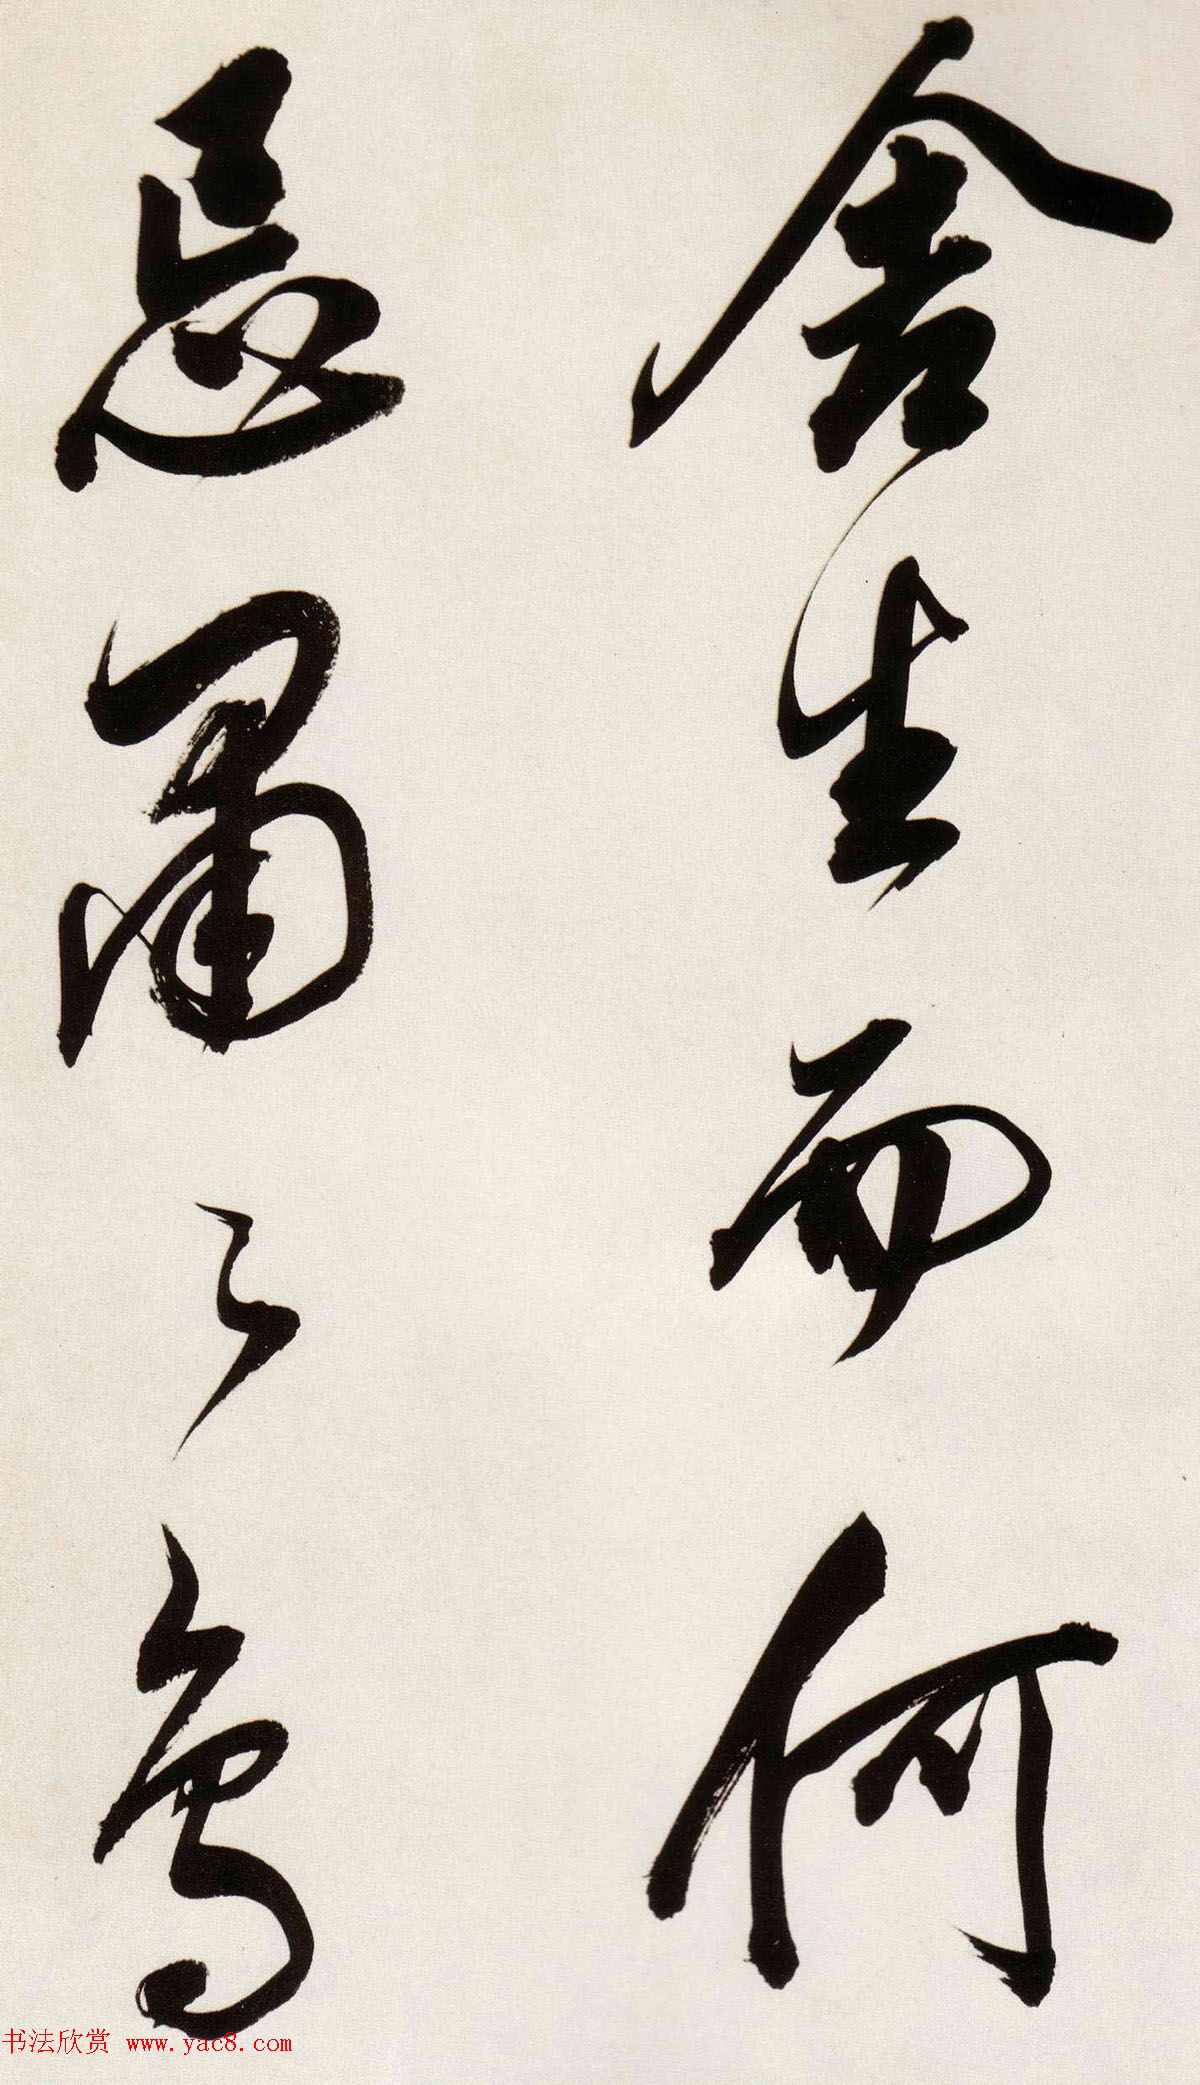 舍生而何
忌肅々烏
书法欣赏 www.yac8.com